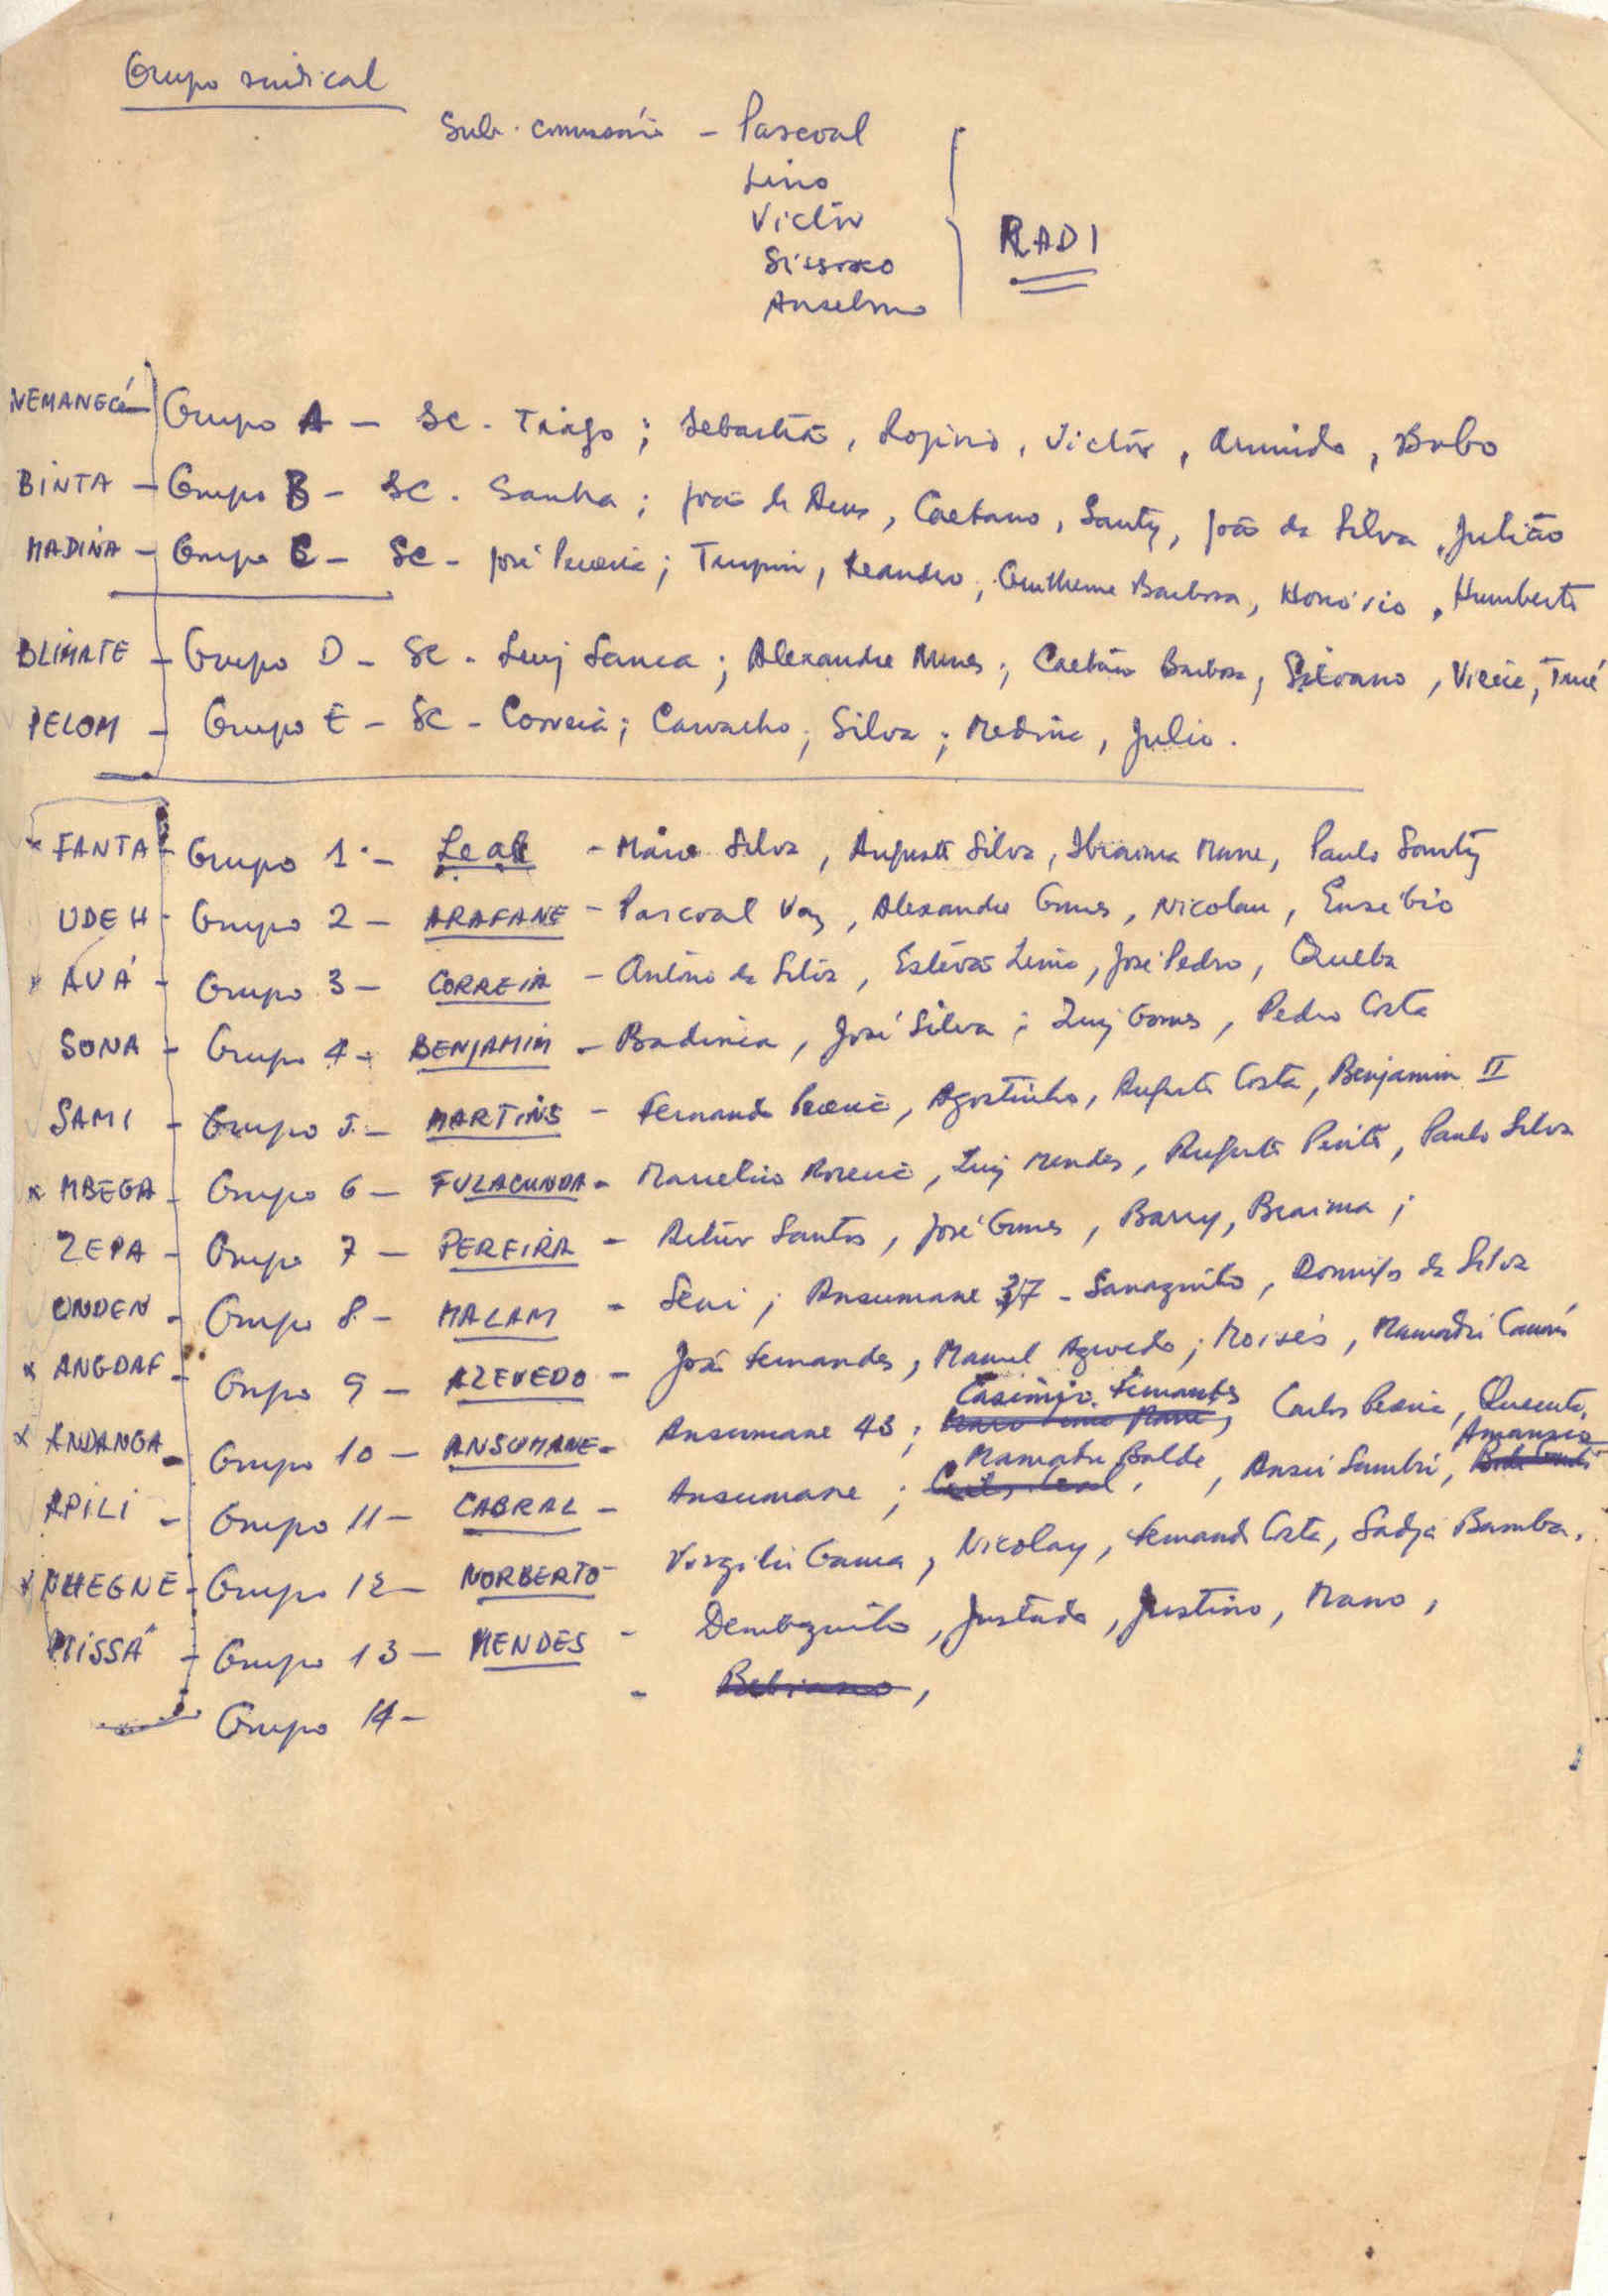 Grupo sindical
Sub-comissário - Pascoal
Lino
Victôr
Sissoco
Anselmo
RADI
NEMANECÓ - Grupo A - SC - Tiago; Sebastião, Rogério, Victôr, Armindo, Bobo
BINTA - Grupo B - SC - Sanha; João de Deus, Caetano, Santy, João da Silva, Julião
MADINA - Grupo C - SC - José Pereira; Turpin, Leandro, Guilherme Barbosa, Honório, Humberto
BLIMATE - Grupo D - SC - Luiz Sanca; Alexandre Nunes; Caetano Barbosa, Silvano, Vieira, Turé
PELOM - Grupo E - SC - Correia; Carvalho; Silva; Medina, Julio.
x FANTA - Grupo 1 - Leal - Mário Silva, Augusto Silva, Ibraima Mane, Paulo Santy
UDEH - Grupo 2 - ARAFANE - Pascoal Vaz, Alexandre Gomes, Nicolau, Eusébio
x AVÁ - Grupo 3 - CORREIA - António da Silva, Estêvão Lino, José Pedro, Queba
SONA - Grupo 4 - BENJAMIM - Badinca, José Silva; Luiz Gomes, Pedro Costa
SAMI - Grupo 5 - MARTINS - Fernando Pereira, Agostinho, Augusto Costa, Benjamin II
x MBEGA - Grupo 6 - FULACUNDA - Marcelino Moreira, Luiz Mendes, Augusto Pinto, Paulo Silva
ZEPA - Grupo 7 - PEREIRA - Artur Santos, José Gomes, Barry, Braima;
ONDEN - Grupo 8 - MALAM - Seni; Ansumane 37 - Sanazinho, Domingos da Silva
x ANGDAF - Grupo 9 - AZEVEDO - José Fernandes, Manuel Azevedo; Moisés, Mamadú Camará
Casimiro Fernandes
x ANDANGA - Grupo 10 - ANSUMANE - Ansumane 43; Carlos Pereira, Quecuta,
Mamadu Balde Amancio
APILI - Grupo 11 - CABRAL - Ansumane; , Ansú Sambú,
x NHEGNE - Grupo 12 - NORBERTO - Virgilio Gama, Nicolay, Fernando Costa, Sadjá Bamba.
MISSÁ - Grupo 13 - MENDES - Dembazinho, Justado, Justino, Mano,
Grupo 14 - - Bebiano,